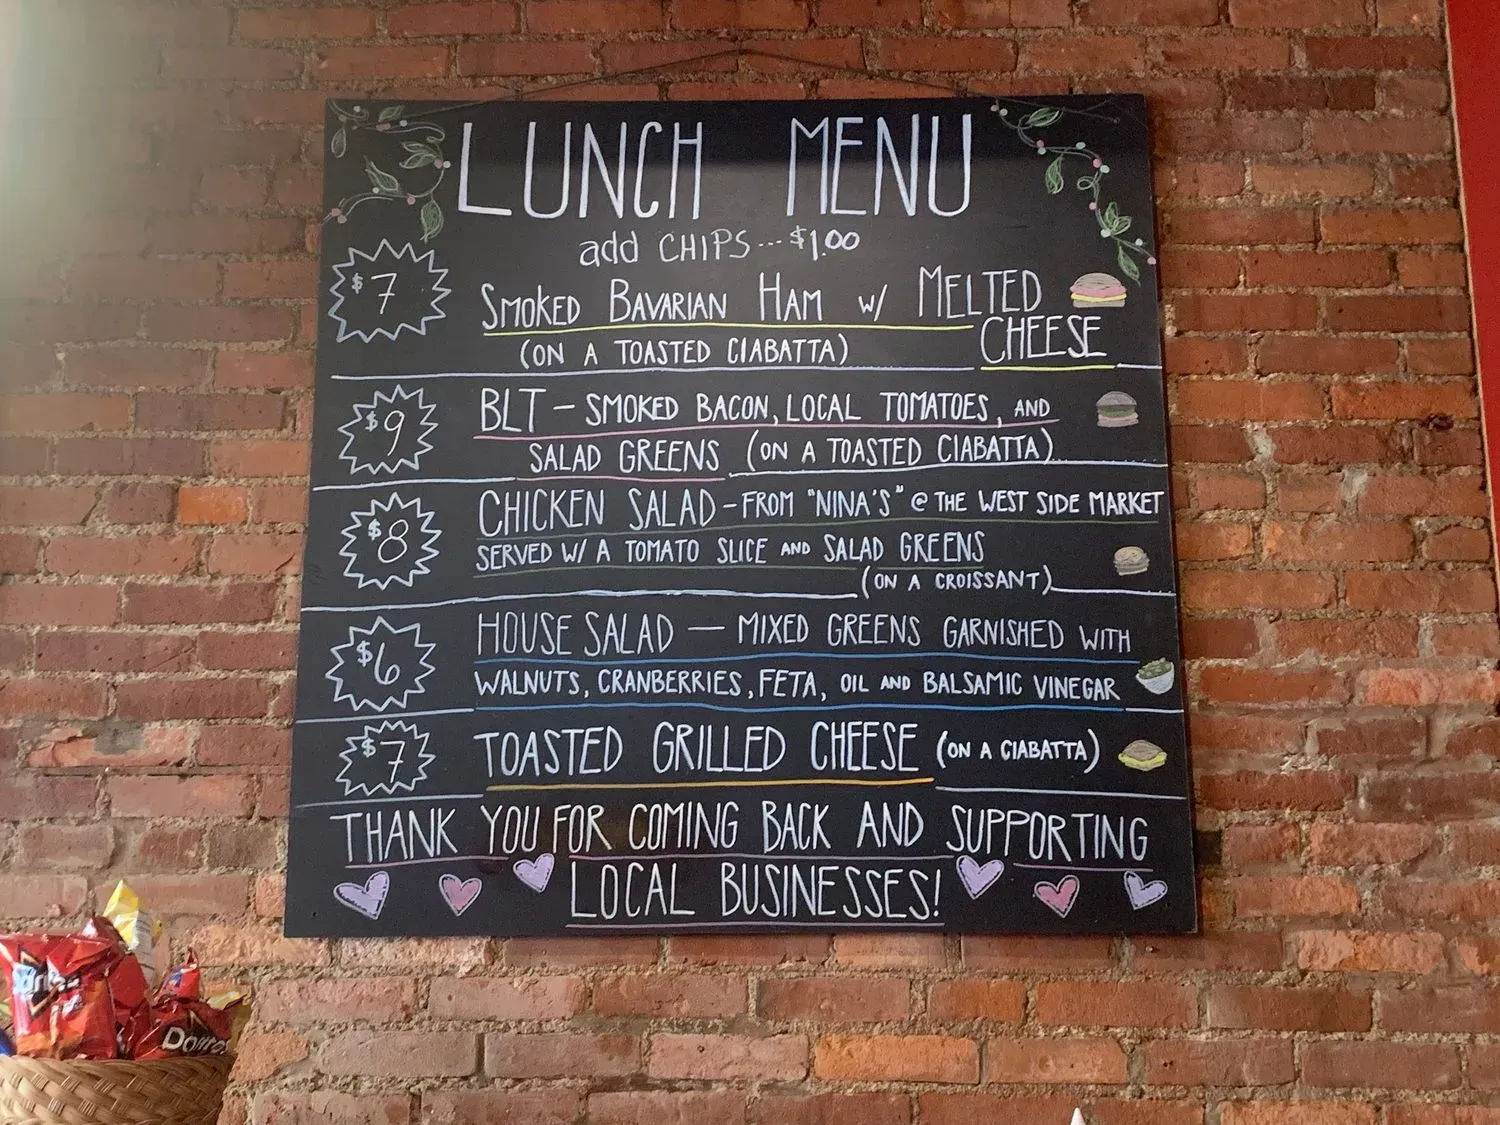 LUNCH MENU
add CHIPS...$1.00
$7
SMOKED BAVARIAN HAM W/ MELTED
CHEESE
(ON A TOASTED CIABATTA)
$9
BLT - SMOKED BACON, LOCAL TOMATOES, AND
SALAD GREENS (ON A TOASTED CIABATTA)
$8
CHICKEN SALAD - FROM "NINA'S" @ THE WEST SIDE MARKET
SERVED W/ A TOMATO SLICE AND SALAD GREENS
(ON A CROISSANT)
$6
HOUSE SALAD — MIXED GREENS GARNISHED WITH
WALNUTS, CRANBERRIES, FETA, OIL AND BALSAMIC VINEGAR
$7
TOASTED GRILLED CHEESE (ON A CIABATTA)
THANK YOU FOR COMING BACK AND SUPPORTING
LOCAL BUSINESSES!
Doritos